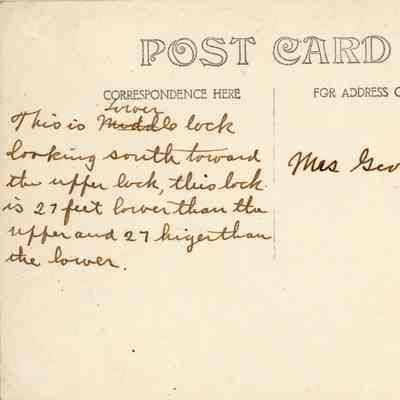 POST CARD
CORRESPONDENCE HERE
FOR ADDRESS
lower
This is Middle lock
looking south toward
the upper lock, this lock
is 27 feet lower than the
upper and 27 higer than
the lower.
Mrs Geo